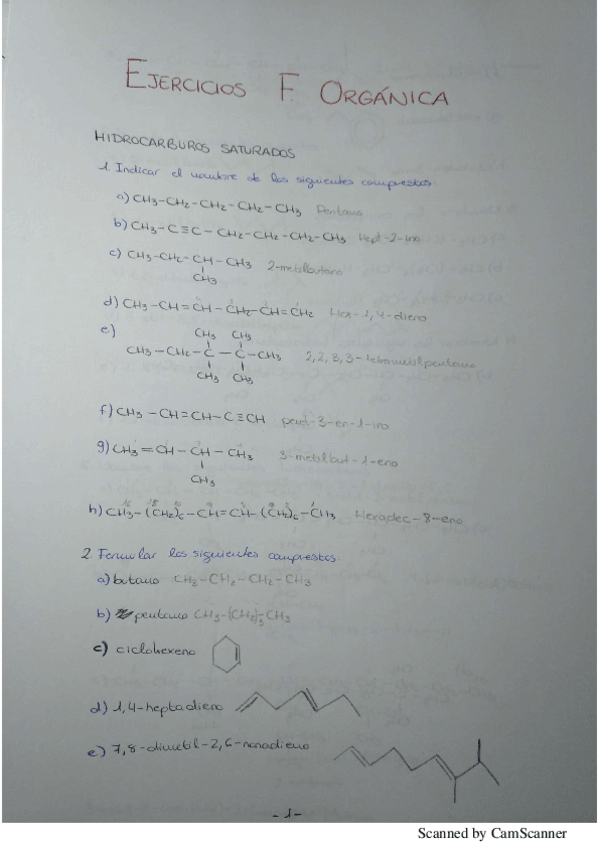 EJERCICIOS F. ORGÁNICA
HIDROCARBUROS SATURADOS
1. Indicar el nombre de los siguientes compuestos
a) CH3-CH2-CH2-CH2-CH3 Pentano
b) CH3-C≡C-CH2-CH2-CH2-CH3 Hept-2-ino
c) CH3-CH2-CH-CH3 2-metilbutano
CH3
d) CH3-CH=CH-CH2-CH=CH2 Hex-1,4-dieno
e) CH3 CH3
CH3-CH2-C-C-CH3 2,2,3,3-tetrametilpentano
CH3 CH3
f) CH3-CH=CH-C≡CH pent-3-en-1-ino
g) CH3=CH-CH-CH3 3-metilbut-1-eno
CH3
h) CH3-(CH2)6-CH=CH-(CH2)6-CH3 Hexadec-8-eno
2. Formular los siguientes compuestos.
a) butano CH3-CH2-CH2-CH3
b) pentano CH3-(CH2)3-CH3
c) ciclohexeno
d) 1,4-heptadieno
e) 7,8-dimetil-2,6-nonadieno
-1-
Scanned by CamScanner